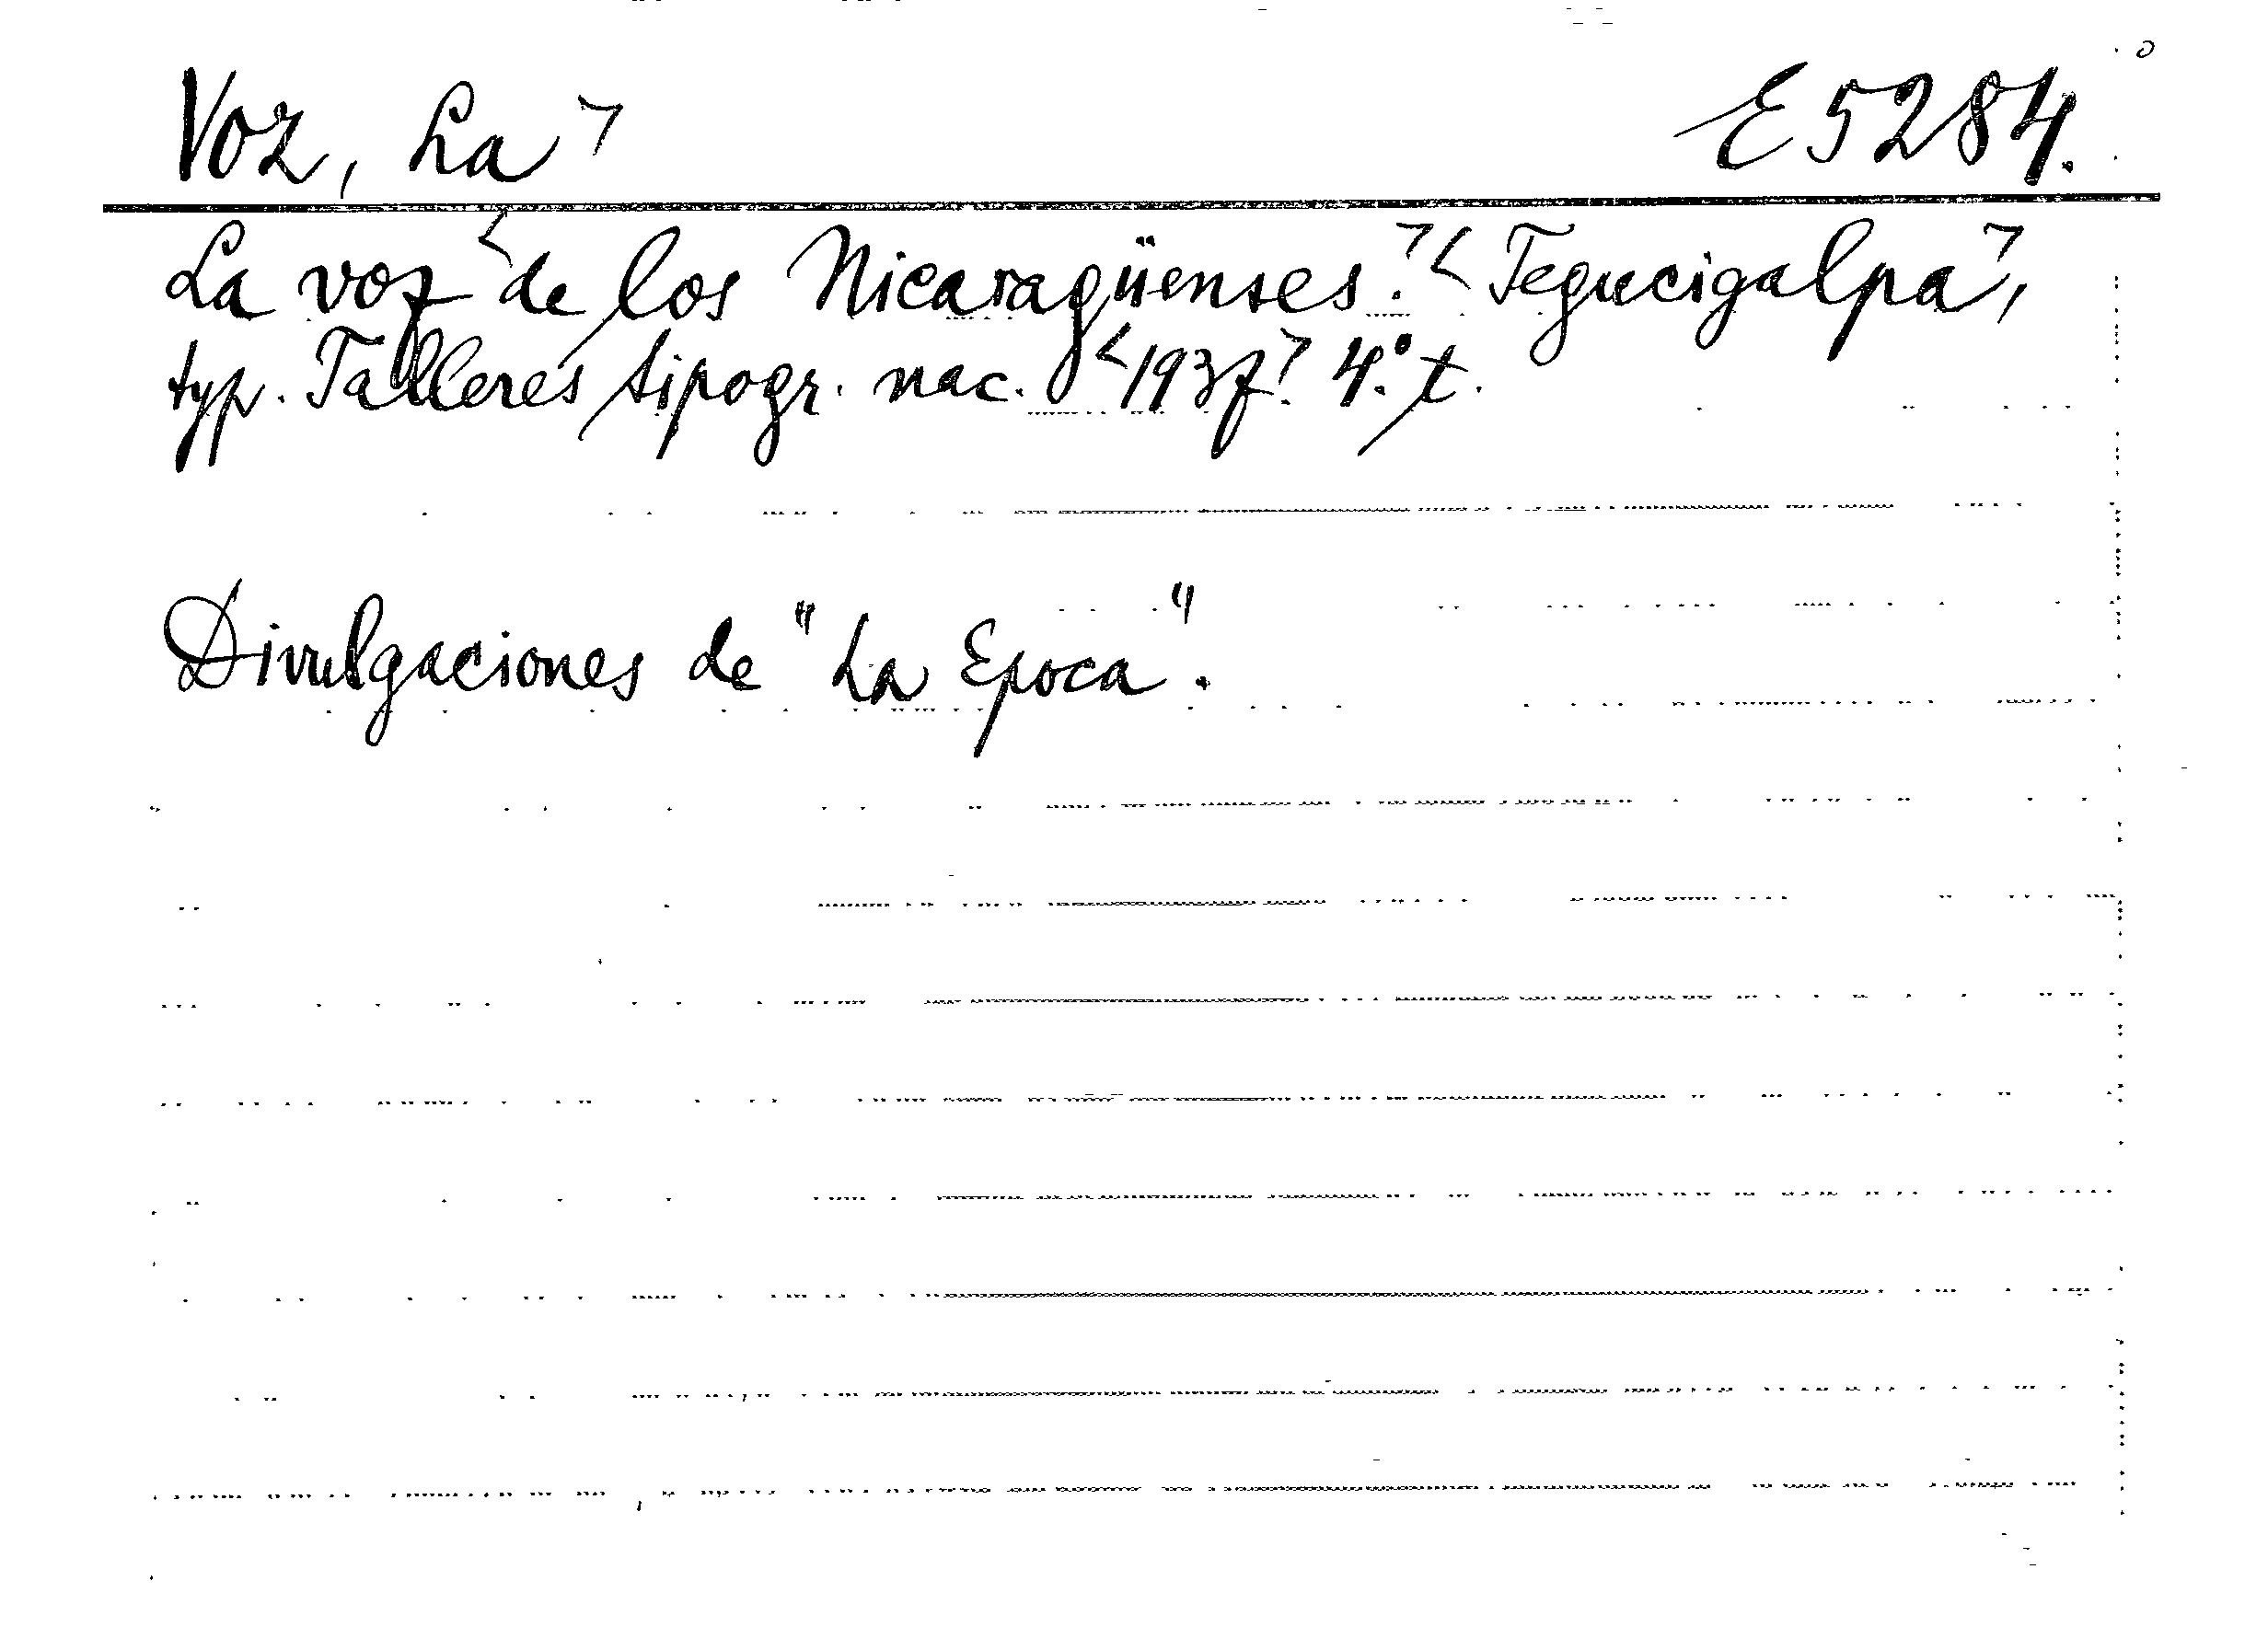 Voz, La ⌝ E5284.
La voz < de los Nicaragüenses.⌝ < Tegucigalpa⌝,
typ. Talleres tipogr. nac. < 1937.⌝ 4:° t.
Divulgaciones de "La Epoca".